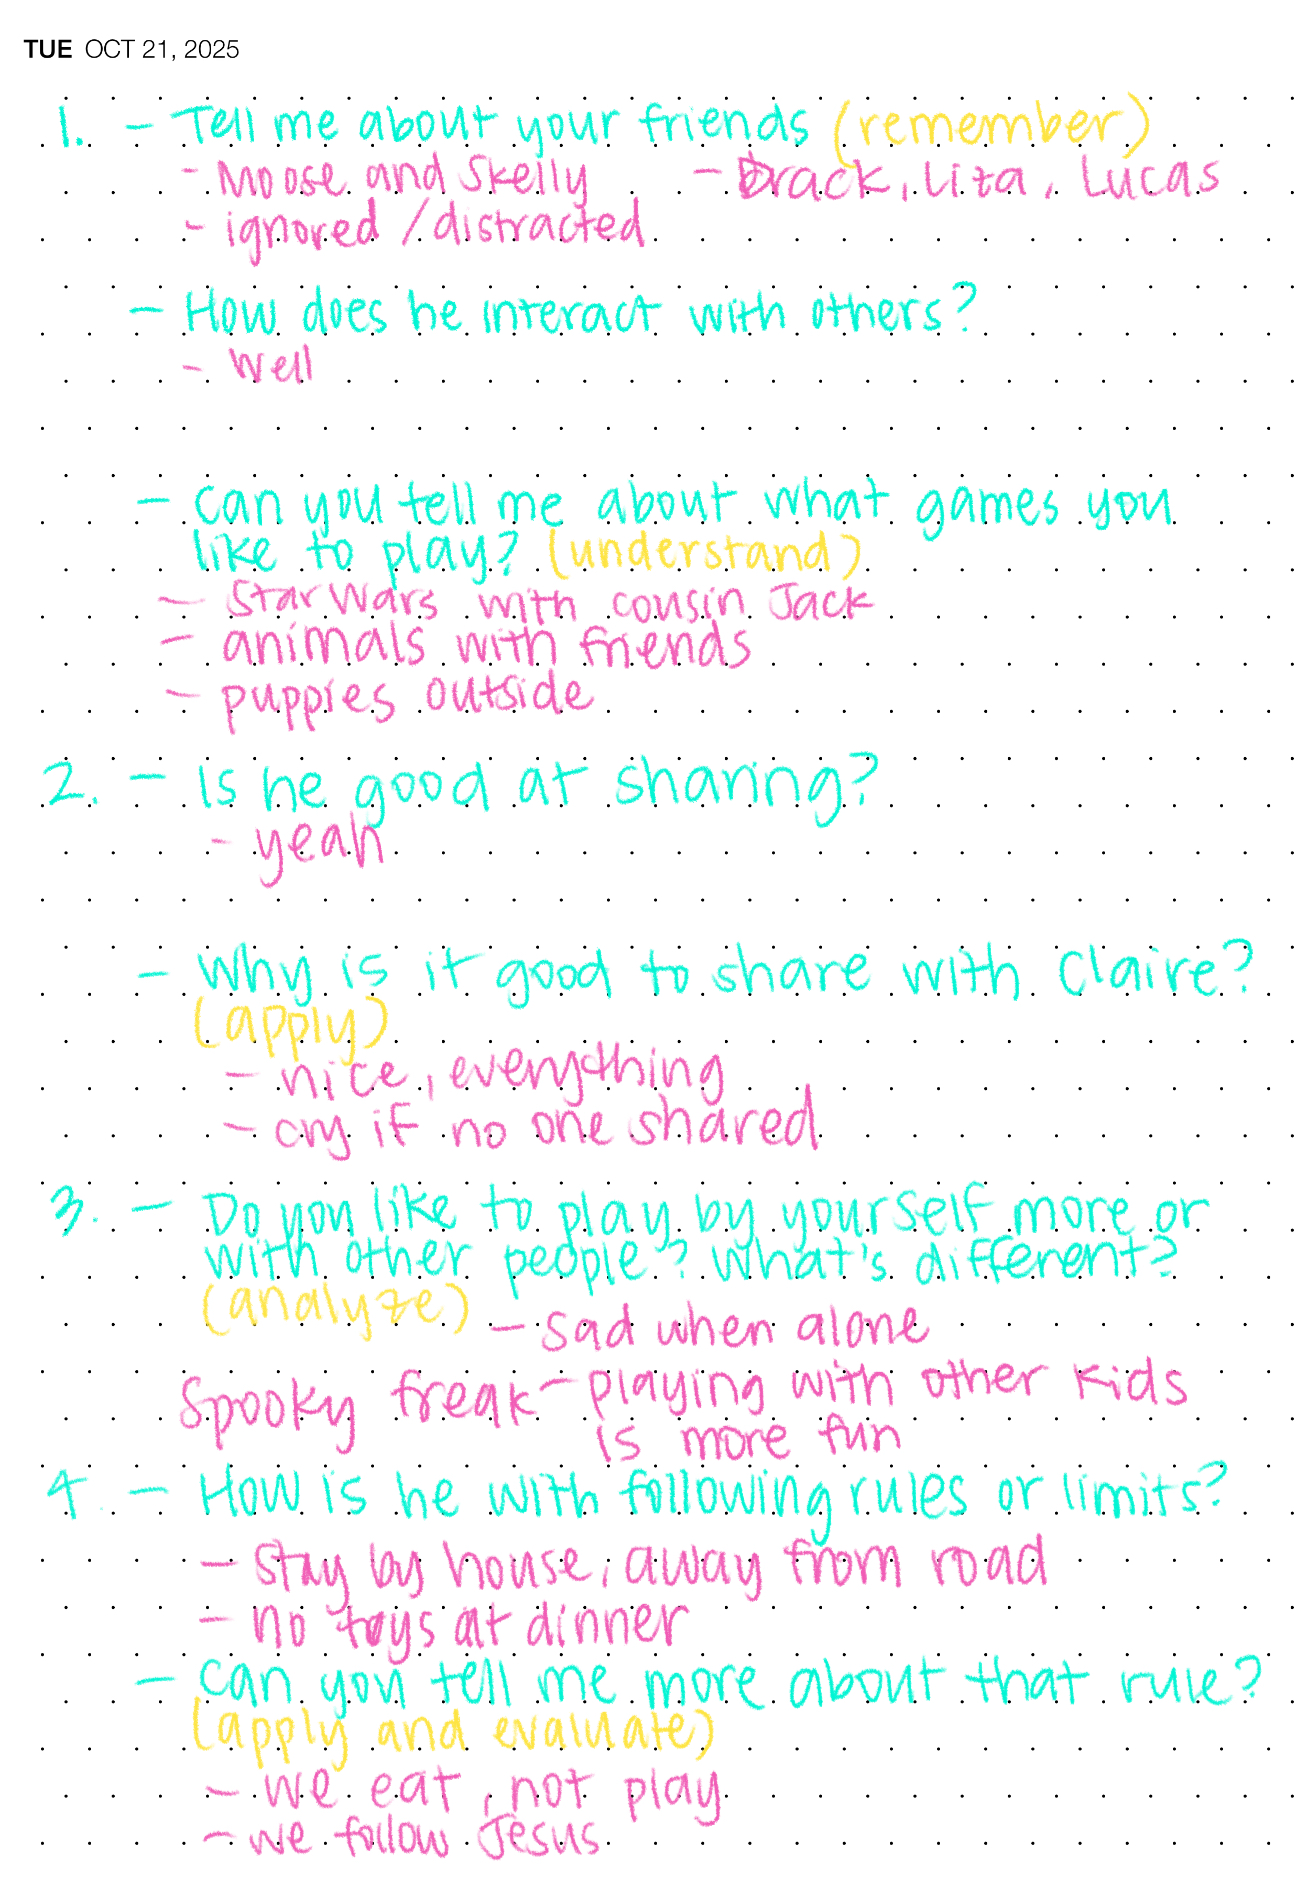 TUE OCT 21, 2025
1. - Tell me about your friends (remember)
- Moose and Skelly - Brack, Liza, Lucas
- ignored / distracted
- How does he interact with others?
- Well
- Can you tell me about what games you
like to play? (understand)
- Star Wars with cousin Jack
- animals with friends
- puppies outside
2. - Is he good at sharing?
- yeah
- Why is it good to share with Claire?
(apply)
- nice, everything
- cry if no one shared
3. - Do you like to play by yourself more or
with other people? What's different?
(analyze) - sad when alone
Spooky freak - playing with other kids
is more fun
4. - How is he with following rules or limits?
- stay by house, away from road
- no toys at dinner
- Can you tell me more about that rule?
(apply and evaluate)
- we eat, not play
- we follow Jesus